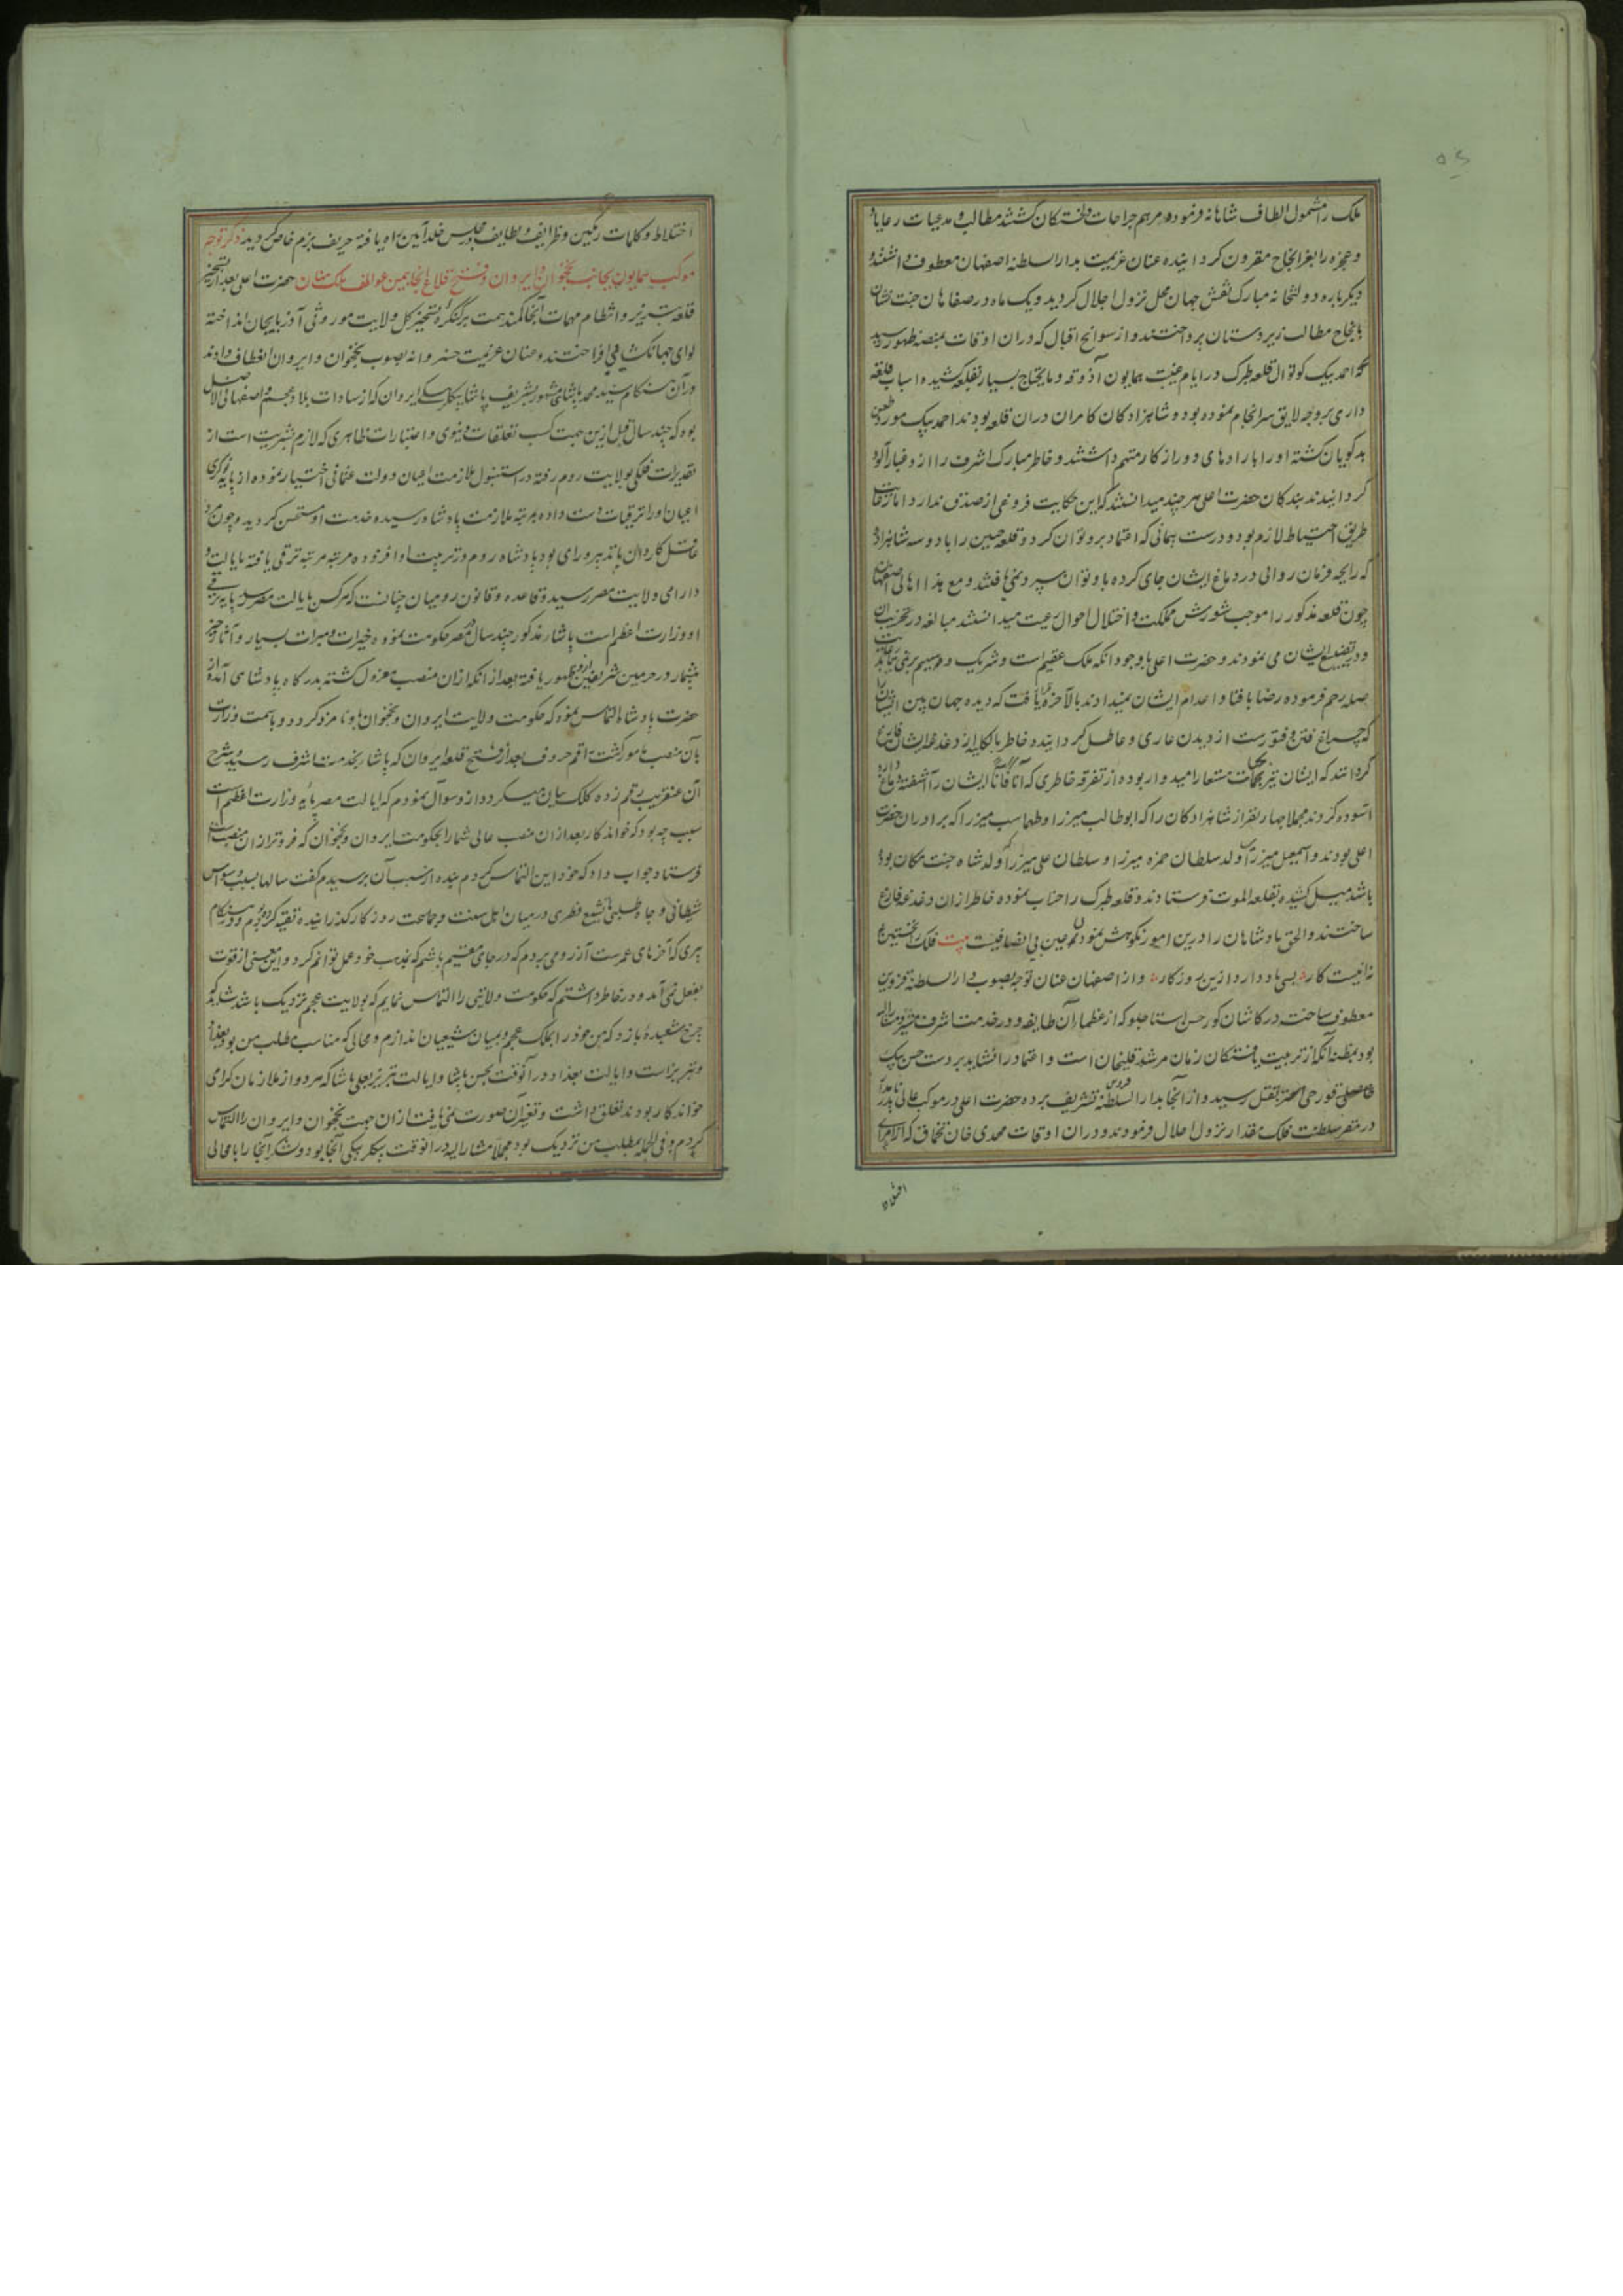 ملک را مشمول الطاف شاهانه فرموده مرهم جراحات دلخستکان کشتند مطالب و مدعیات رعایا و
و عجزه را بعز انجاح مقرون کردانیده عنان عزیمت بدار السلطنه اصفهان معطوف داشتند و
دیکرباره دولتخانه مبارک نقش جهان محل نزول اجلال کردید و یک ماه در صفاهان جنت نشان
بانجاح مطالب زیردستان پرداختند و از سوانح اقبال که دران اوقات بمنصه ظهور رسید
احمد بیک کوتوال قلعه طبرک در ایام غیبت همایون آذوقه و مایحتاج بسیار بقلعه کشیده اسباب قلعه
داری بروجه لایق سرانجام نموده بود و شاهزادکان کامران دران قلعه بودند احمد بیک مورد طعن
بدکویان کشته او را با رادهای دور از کار متهم داشتند و خاطر مبارک اشرف را از و غبار آلود
کردانیدند بندکان حضرت اعلی هر چند میدانستند که این حکایت فروغی از صدق ندارد اما رعایت
طریق احتیاط لازم بود و درست پیمانی که اعتماد برو توان کرد و قلعه چنین را با دو سه شاهزاده
که رایحه فرمان روائی در دماغ ایشان جای کرده باو توان سپرد نمی یافتند و مع هذا اهالی اصفهان
چون قلعه مذکور را موجب شورش مملکت و اختلال احوال رعیت میدانستند مبالغه در تخریب آن
و تضییع ایشان می نمودند و حضرت اعلی با وجود آنکه ملک عقیم است و شریک و سهیم برنمی تابد
صله رحم فرموده رضا بافنا و اعدام ایشان نمیدادند بالآخره یافت که دیده جهان بین ایشان را
که چراغ فتن و فتورست از دیدن عاری و عاطل کردانیده خاطر بالکلیه از دغدغه ایشان فارغ
کردانند که ایشان نیز بحیات مستعار امیدوار بوده از تفرقه خاطری که آناً فاناً ایشان را آشفته دماغ دارد
آسوده کردند مجملا چهار نفر از شاهزادکان را که ابوطالب میرزا و طهماسب میرزا که برادران حضرت
اعلی بودند و اسمعیل میرزا ولد سلطان حمزه میرزا و سلطان علی میرزا ولد شاه جنت مکان بود
باشد میل کشیده بقلعه الموت فرستادند و قلعه طبرک را خراب نموده خاطر ازان دغدغه فارغ
ساختند و الحق پادشاهان را درین امور نکوهش نمودن عین بی انصافیست بیت فلک را نخستین
نه اینست کار بسی یاد دارد ازین روزکار و از اصفهان عنان توجه بصوب دار السلطنه قزوین
معطوف ساخت در کاشان کور حسن استاجلو که از عظمای آن طایفه و در خدمت اشرف معزز و مشار الیه
بود بمظنه آنکه از تربیت یافتکان زمان مرشد قلیخان است و اعتماد را نشاید بر دست حسن بیک
قورچی بقتل رسید و از آنجا بدار السلطنه قزوین تشریف برده حضرت اعلی در موکب عالی
در مقر سلطنت فلک مقدار نزول اجلال فرمودند و دران اوقات محمدی خان تخماق که از امرای
اختلاط و کلمات رنکین و ظرایف و لطایف مجلس خلد آیین راه یافته حریف بزم خاص کردید ذکر توجه
موکب همایون بجانب نخجوان و ایروان و فتح قلاع آنجا بیمن عواطف ملک منان حضرت اعلی بعد از تسخیر
قلعه تبریز و انتظام مهمات آنجا کمند همت بر کنکره تسخیر کل ولایت موروثی آذربایجان انداخته
لوای جهانکشایی افراختند و عنان عزیمت خسروانه بصوب نخجوان و ایروان انعطاف دادند
و در آن هنکام سید محمد پاشای مشهور بشریف پاشا بیکلربیکی ایروان که از سادات بلاد عجم و اصفهانی الاصل
بود که چند سال قبل ازین جهت کسب تعلقات دنیوی و اعتبارات ظاهری که لازم بشریت است از
تقدیرات فلکی بولایت روم رفته در استنبول ملازمت اعیان دولت عثمانی اختیار نموده از پایه نوکری
اعیان او را ترقیات دست داده بمرتبه ملازمت پادشاه رسیده خدمت او مستحسن کردید و چون مرد
عاقل کاردان با تدبیر و رای بود پادشاه روم در تربیت او افزوده مرتبه مرتبه ترقی یافته بایالت و
دارایی ولایت مصر رسید و قاعده و قانون رومیان چنانست که هر کس بایالت مصر رسد پایه ترقی
او وزارت اعظم است پاشاء مذکور چند سال در مصر حکومت نموده خیرات و مبرات بسیار و آثار خیر
بیشمار در حرمین شریفین ازو بظهور یافته بعد از آنکه ازان منصب معزول کشته بدرکاه پادشاهی آمده از
حضرت پادشاه التماس نمود که حکومت ولایت ایروان و نخجوان باو نامزد کردد و باسمت وزارت
بآن منصب مامور کشت راقم حروف بعد از فتح قلعه ایروان که پاشا بخدمت اشرف رسید و شرح
آن عنقریب رقم زده کلک بیان میکردد ازو سوال نمودم که ایالت مصر پایه وزارت اعظم است
سبب چه بود که خواندکار بعد ازان منصب عالی شما را بحکومت ایروان و نخجوان که فروتر ازان منصب است
فرستاد جواب داد که خود این التماس کردم بنده از سبب آن پرسیدم کفت سالها بسبب وسواس
شیطانی و جاه طلبی با تشیع فطری در میان اهل سنت و جماعت روزکار کذرانیده تقیه کردم و در هنکام
پیری که آخرهای عمرست آرزو می بردم که در جای مقیم باشم که بمذهب خود عمل توانم کرد و این معنی از قوت
بفعل نمی آمد و در خاطر داشتم که حکومت ولایتی را التماس نمایم که بولایت عجم نزدیک باشد شاید که
چرخ شعبده بازد که من خود را بملک عجم و بمیان شیعیان اندازم و محالی که مناسب مطلب من بود بغداد
و تبریز است و ایالت بغداد در آنوقت بحسن پاشا و ایالت تبریز بعلی پاشا که هر دو از ملازمان کرامی
خواندکار بودند تعلق داشت و تغییر آن صورت نمی یافت ازان جهت نخجوان و ایروان را التماس
کردم و فی الجمله بمطلب من نزدیک بود مجملا مشار الیه در آنوقت بیکلربیکی آنجا بود و لشکر آنجا را با محالی